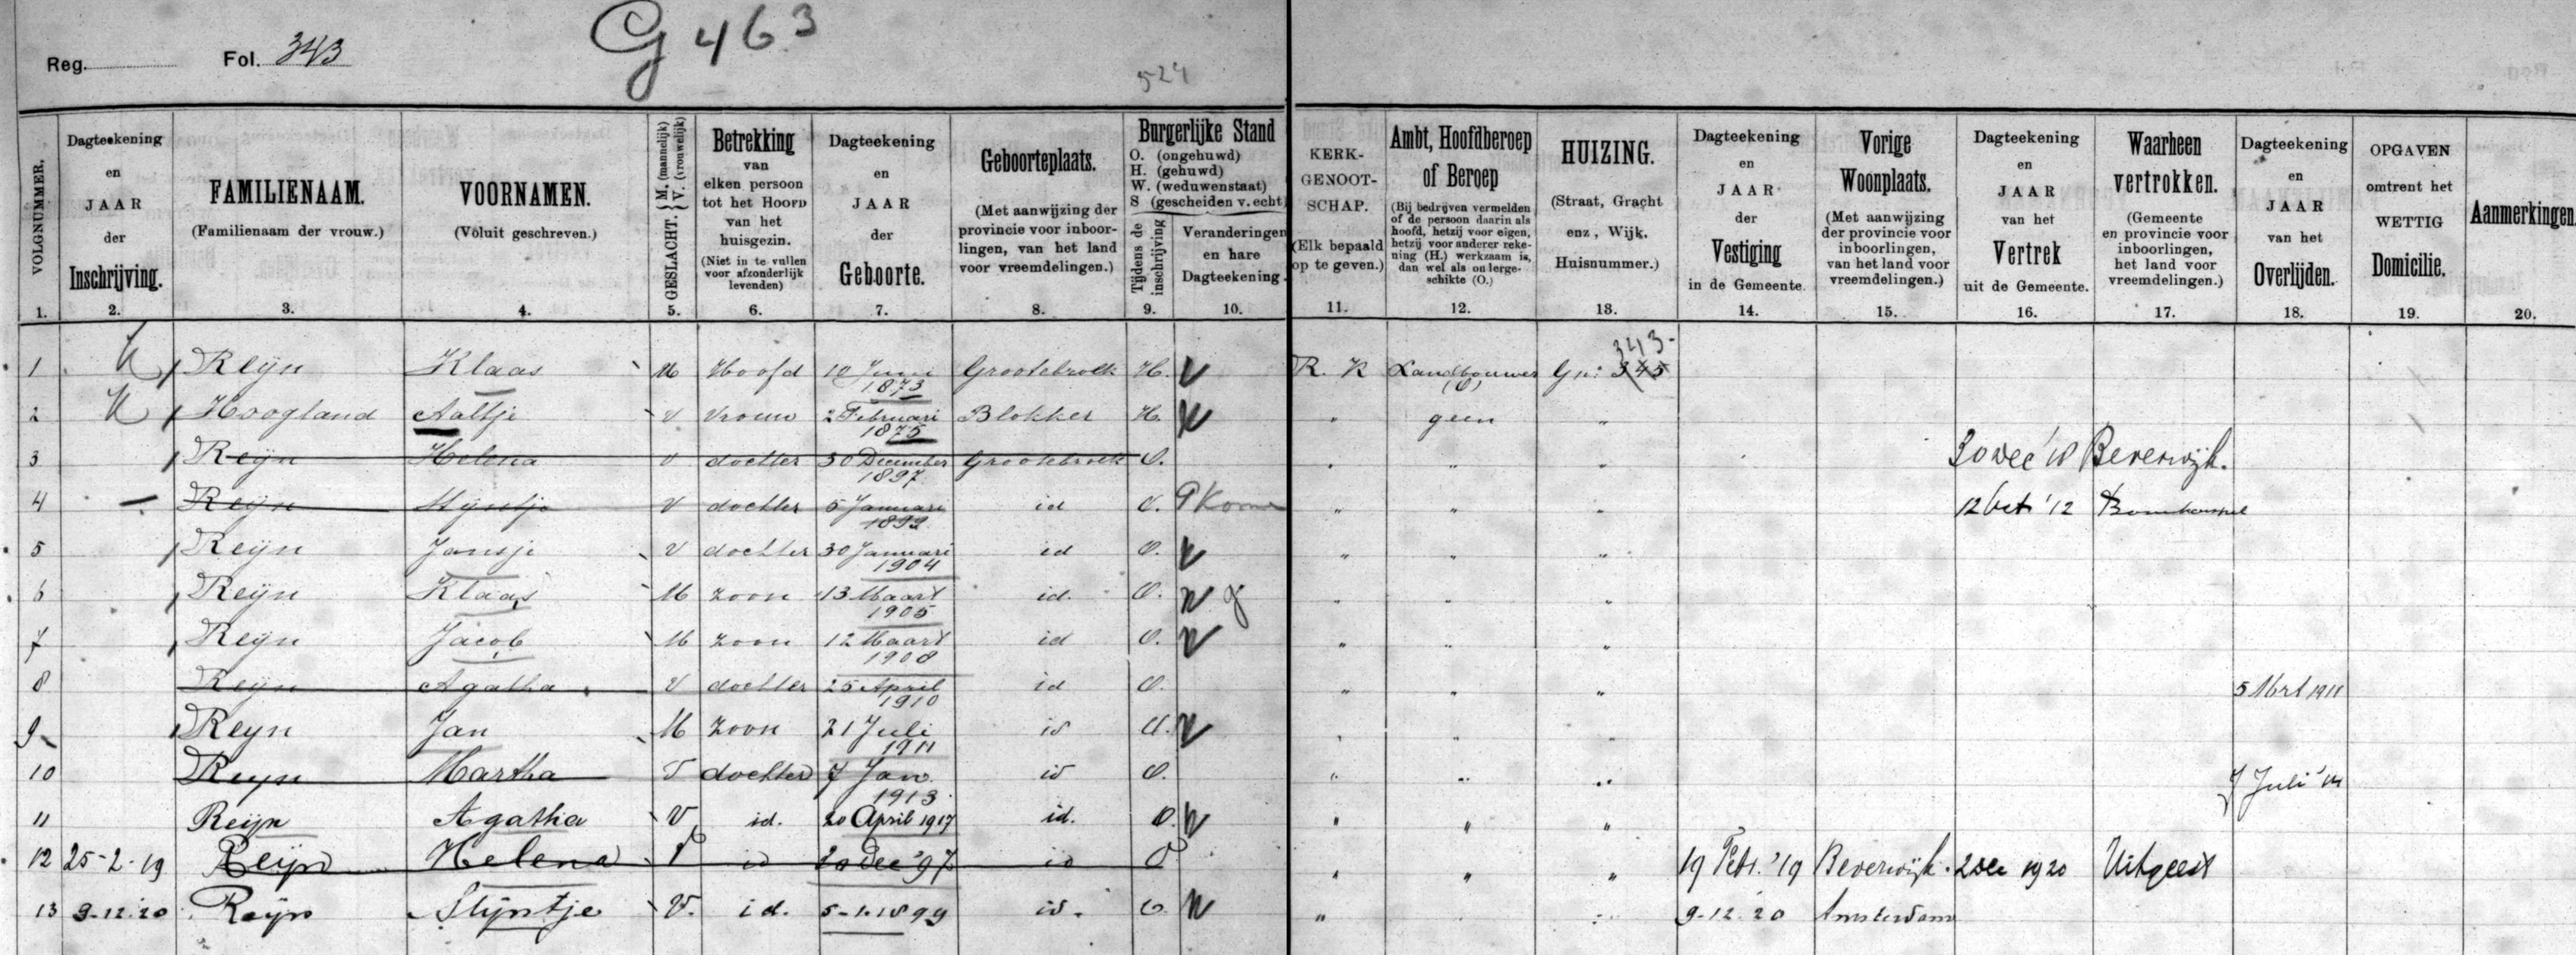 Reg. Fol. 343
G 463
524
VOLGNUMMER. 1.
Dagteekening en JAAR der Inschrijving. 2.
FAMILIENAAM. (Familienaam der vrouw.) 3.
VOORNAMEN. (Voluit geschreven.) 4.
GESLACHT. M. (mannelijk) V. (vrouwelijk) 5.
Betrekking van elken persoon tot het Hoofd van het huisgezin. (Niet in te vullen voor afzonderlijk levenden) 6.
Dagteekening en JAAR der Geboorte. 7.
Geboorteplaats. (Met aanwijzing der provincie voor inboorlingen, van het land voor vreemdelingen.) 8.
Burgerlijke Stand
O. (ongehuwd)
H. (gehuwd)
W. (weduwenstaat)
S (gescheiden v. echt)
Tijdens de inschrijving 9.
Veranderingen en hare Dagteekening. 10.
KERK-GENOOT-SCHAP. (Elk bepaald op te geven.) 11.
Ambt, Hoofdberoep of Beroep (Bij bedrijven vermelden of de persoon daarin als hoofd, hetzij voor eigen, hetzij voor anderer rekening (H.) werkzaam is, dan wel als onlergeschikte (O.) 12.
HUIZING. (Straat, Gracht enz, Wijk. Huisnummer.) 13.
Dagteekening en JAAR der Vestiging in de Gemeente. 14.
Vorige Woonplaats. (Met aanwijzing der provincie voor inboorlingen, van het land voor vreemdelingen.) 15.
Dagteekening en JAAR van het Vertrek uit de Gemeente. 16.
Waarheen vertrokken. (Gemeente en provincie voor inboorlingen, het land voor vreemdelingen.) 17.
Dagteekening en JAAR van het Overlijden. 18.
OPGAVEN omtrent het WETTIG Domicilie. 19.
Aanmerkingen. 20.
343-
1 Reijn Klaas M Hoofd 10 Juni 1873 Grootebroek H. R. K Landbouwer (O) Gn: 345
2 Hoogland Aaltje V Vrouw 2 Februari 1875 Blokker H. " geen "
3 Reijn Helena V dochter 30 December 1897 Grootebroek O. " " " 30 dec '18 Beverwijk.
4 Reijn Stijntje V dochter 5 Januari 1899 id O. " " " 12 Oct '12
5 Reijn Jansje V dochter 30 Januari 1904 id O. " " "
6 Reijn Klaas M zoon 13 Maart 1905 id. O. " " "
7 Reijn Jacob M zoon 12 Maart 1908 id O. " " "
8 Reijn Agatha V dochter 25 April 1910 id O. " " " 5 Mrt 1911
9 Reijn Jan M zoon 21 Juli 1911 id O. " " "
10 Reijn Martha V dochter 7 Jan. 1913 id O. " " " 7 Juli '14
11 Reijn Agatha V id. 20 April 1917 id. O. " " "
12 25-2-19 Reijn Helena V id 20 Dec '97 id O " " " 19 Febr. '19 Beverwijk. 2 Dec 1920 Uitgeest
13 9-12-20 Reijn Stijntje V. id. 5-1-1899 id. O. " " 9-12-20 Amsterdam